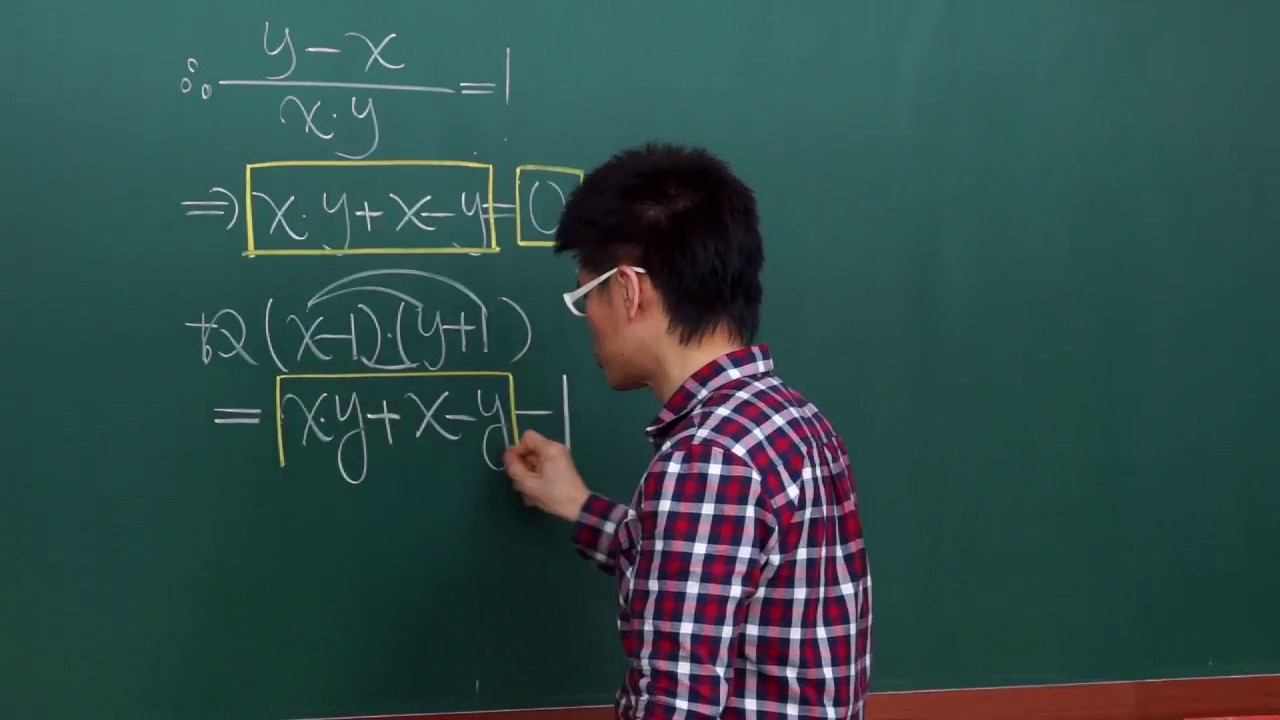 ∴ y-x / x·y = 1
⇒ x·y+x-y=0
(x-1)·(y+1)
= x·y+x-y-1